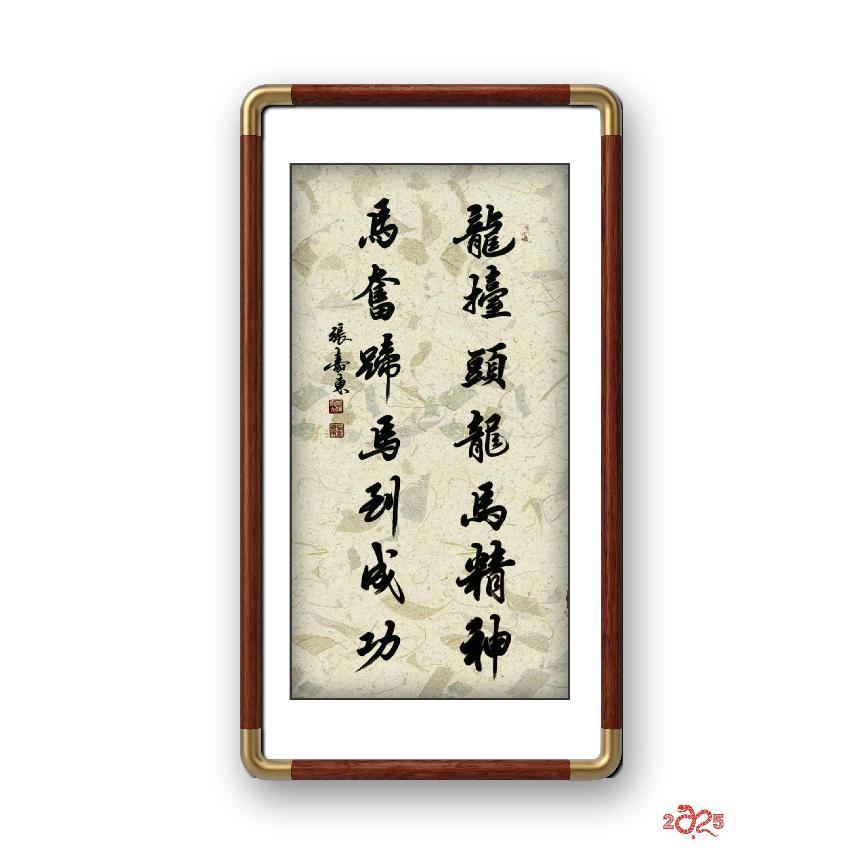 龍擡頭龍馬精神
馬奮蹄馬到成功
張壽東
2025